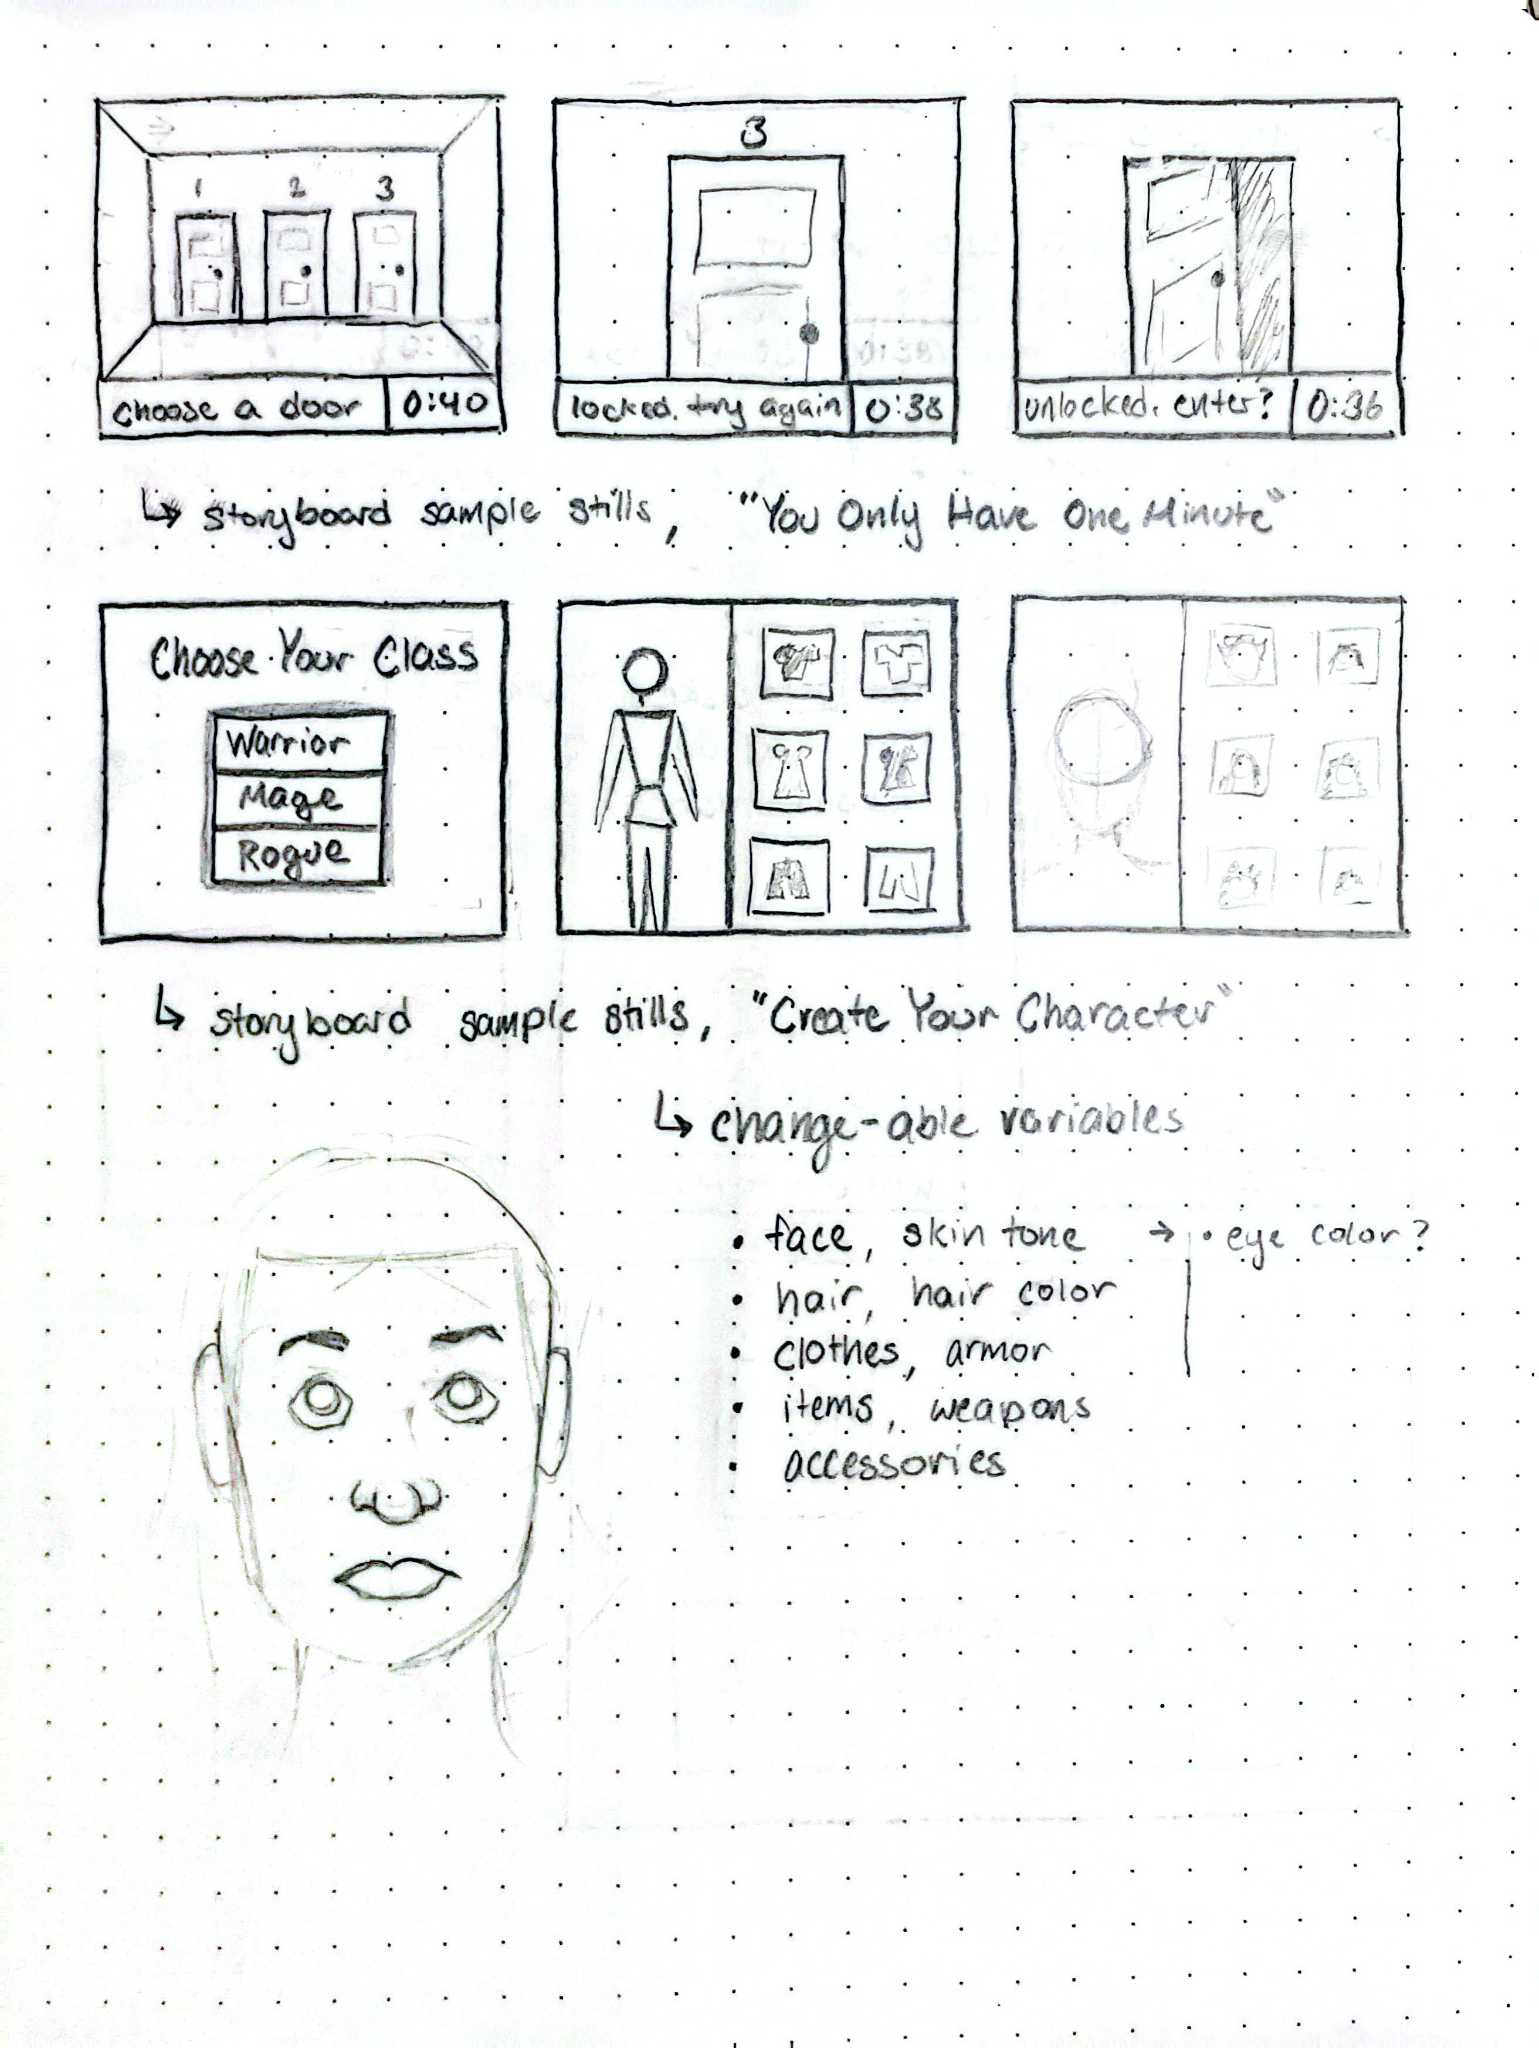 1 2 3
choose a door 0:40
3
locked. try again 0:38
unlocked. enter? 0:36
↳ storyboard sample stills, "You Only Have One Minute"
Choose Your Class
Warrior
Mage
Rogue
↳ storyboard sample stills, "Create Your Character"
↳ change-able variables
• face, skin tone → • eye color?
• hair, hair color
• clothes, armor
• items, weapons
• accessories